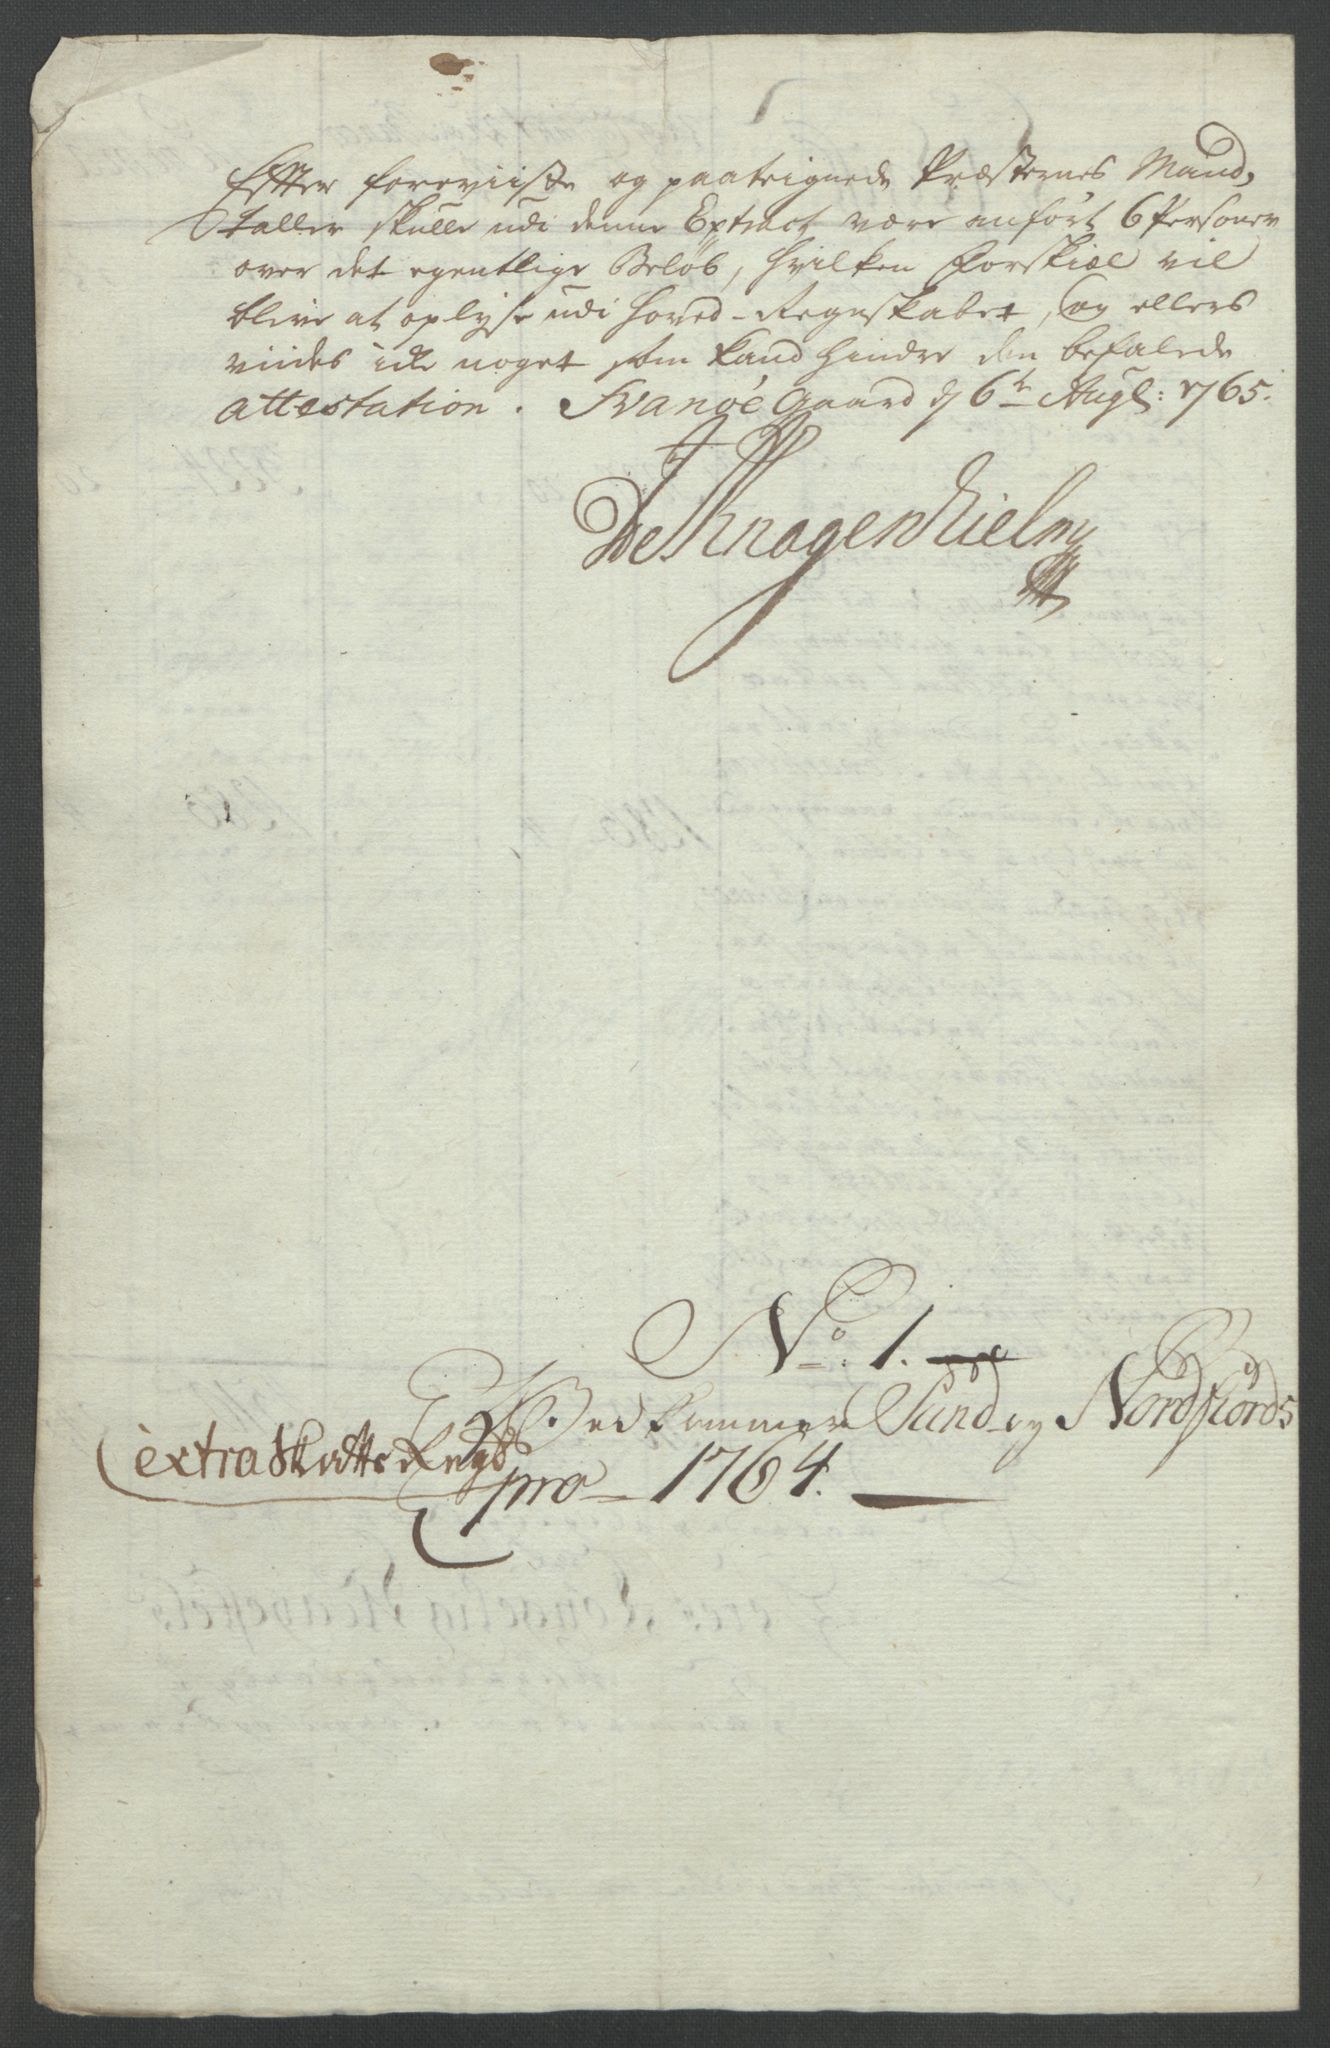 Efter foreviiste og paateignede Præsternes Mand,
taller skulle udi denne Extract være anført 6 Personer
over det egentlige Beløb, hvilken Forskiæl vil
blive at oplyse udi Hoved-Regnskabet, og ellers
viides icke noget som kand hindre den befalede
attestation. Svanöe Gaard d 6te Augs: 1765.
De Knagenhielm
No. 1.
Vedkommer Sund- og Nordfiords
extraSkatts Regs
pro 1764.